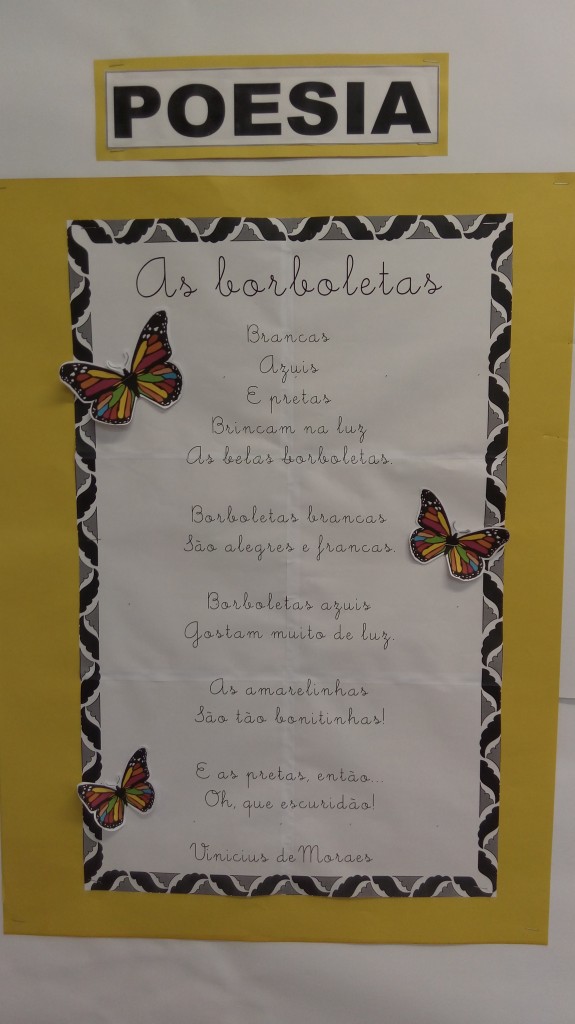 POESIA
As borboletas
Brancas
Azuis
E pretas
Brincam na luz
As belas borboletas.
Borboletas brancas
São alegres e francas.
Borboletas azuis
Gostam muito de luz.
As amarelinhas
São tão bonitinhas!
E as pretas, então...
Oh, que escuridão!
Vinicius de Moraes